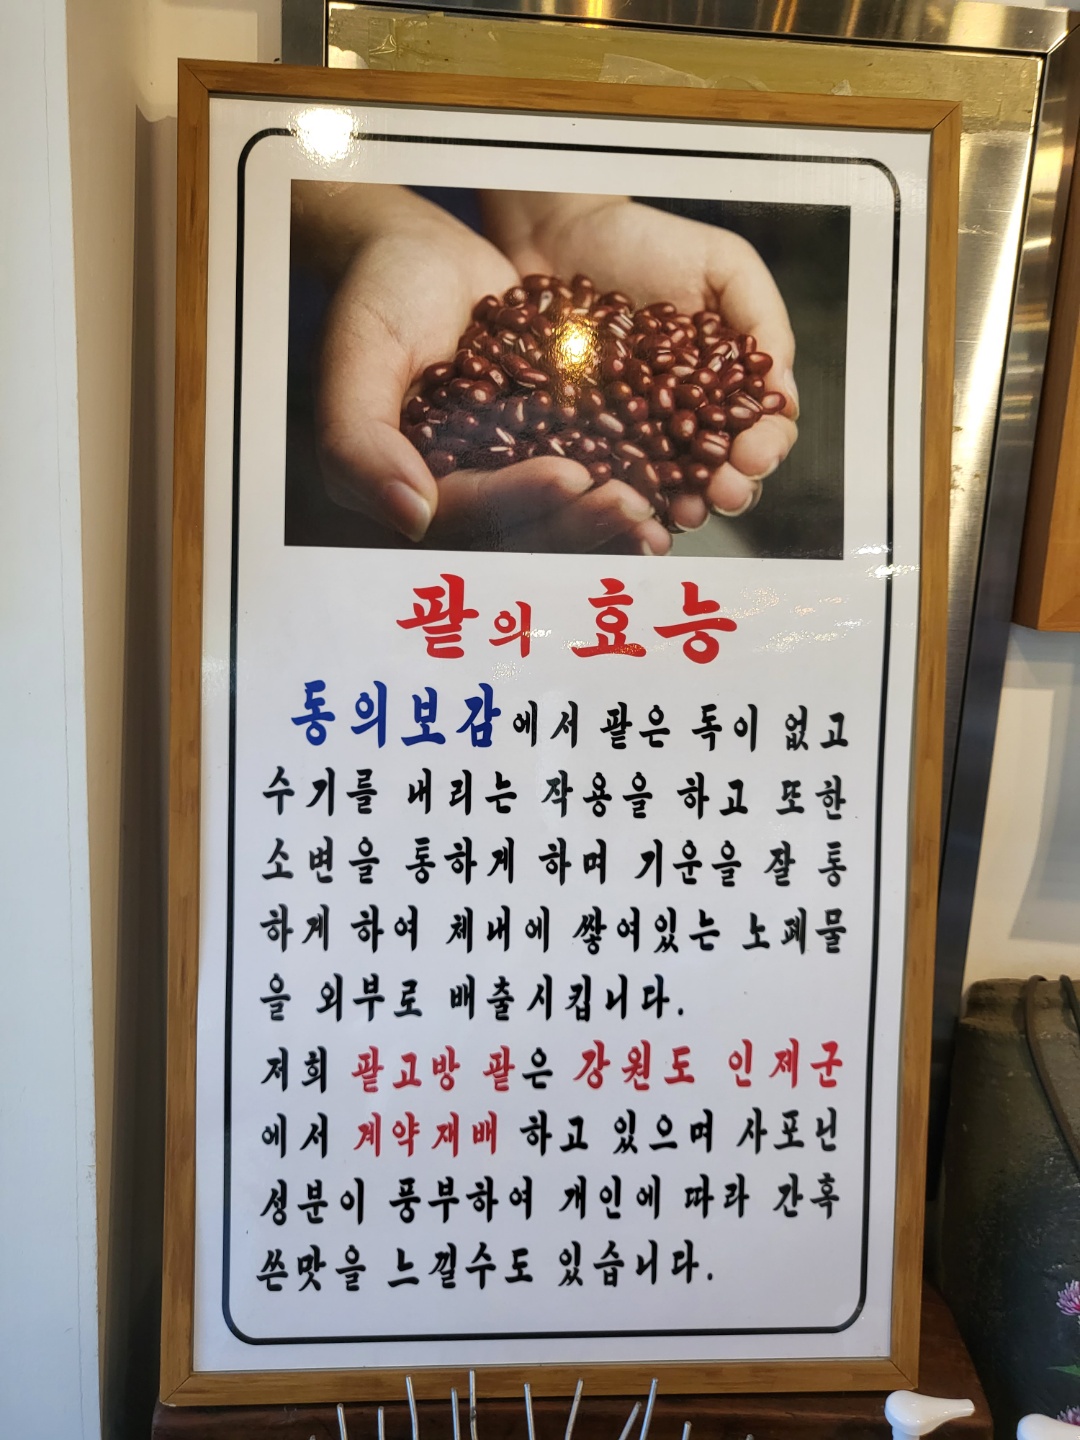 팥의 효능
동의보감에서 팥은 독이 없고
수기를 내리는 작용을 하고 또한
소변을 통하게 하며 기운을 잘 통
하게 하여 체내에 쌓여있는 노폐물
을 외부로 배출시킵니다.
저희 팥고방 팥은 강원도 인제군
에서 계약재배 하고 있으며 사포닌
성분이 풍부하여 개인에 따라 간혹
쓴맛을 느낄수도 있습니다.